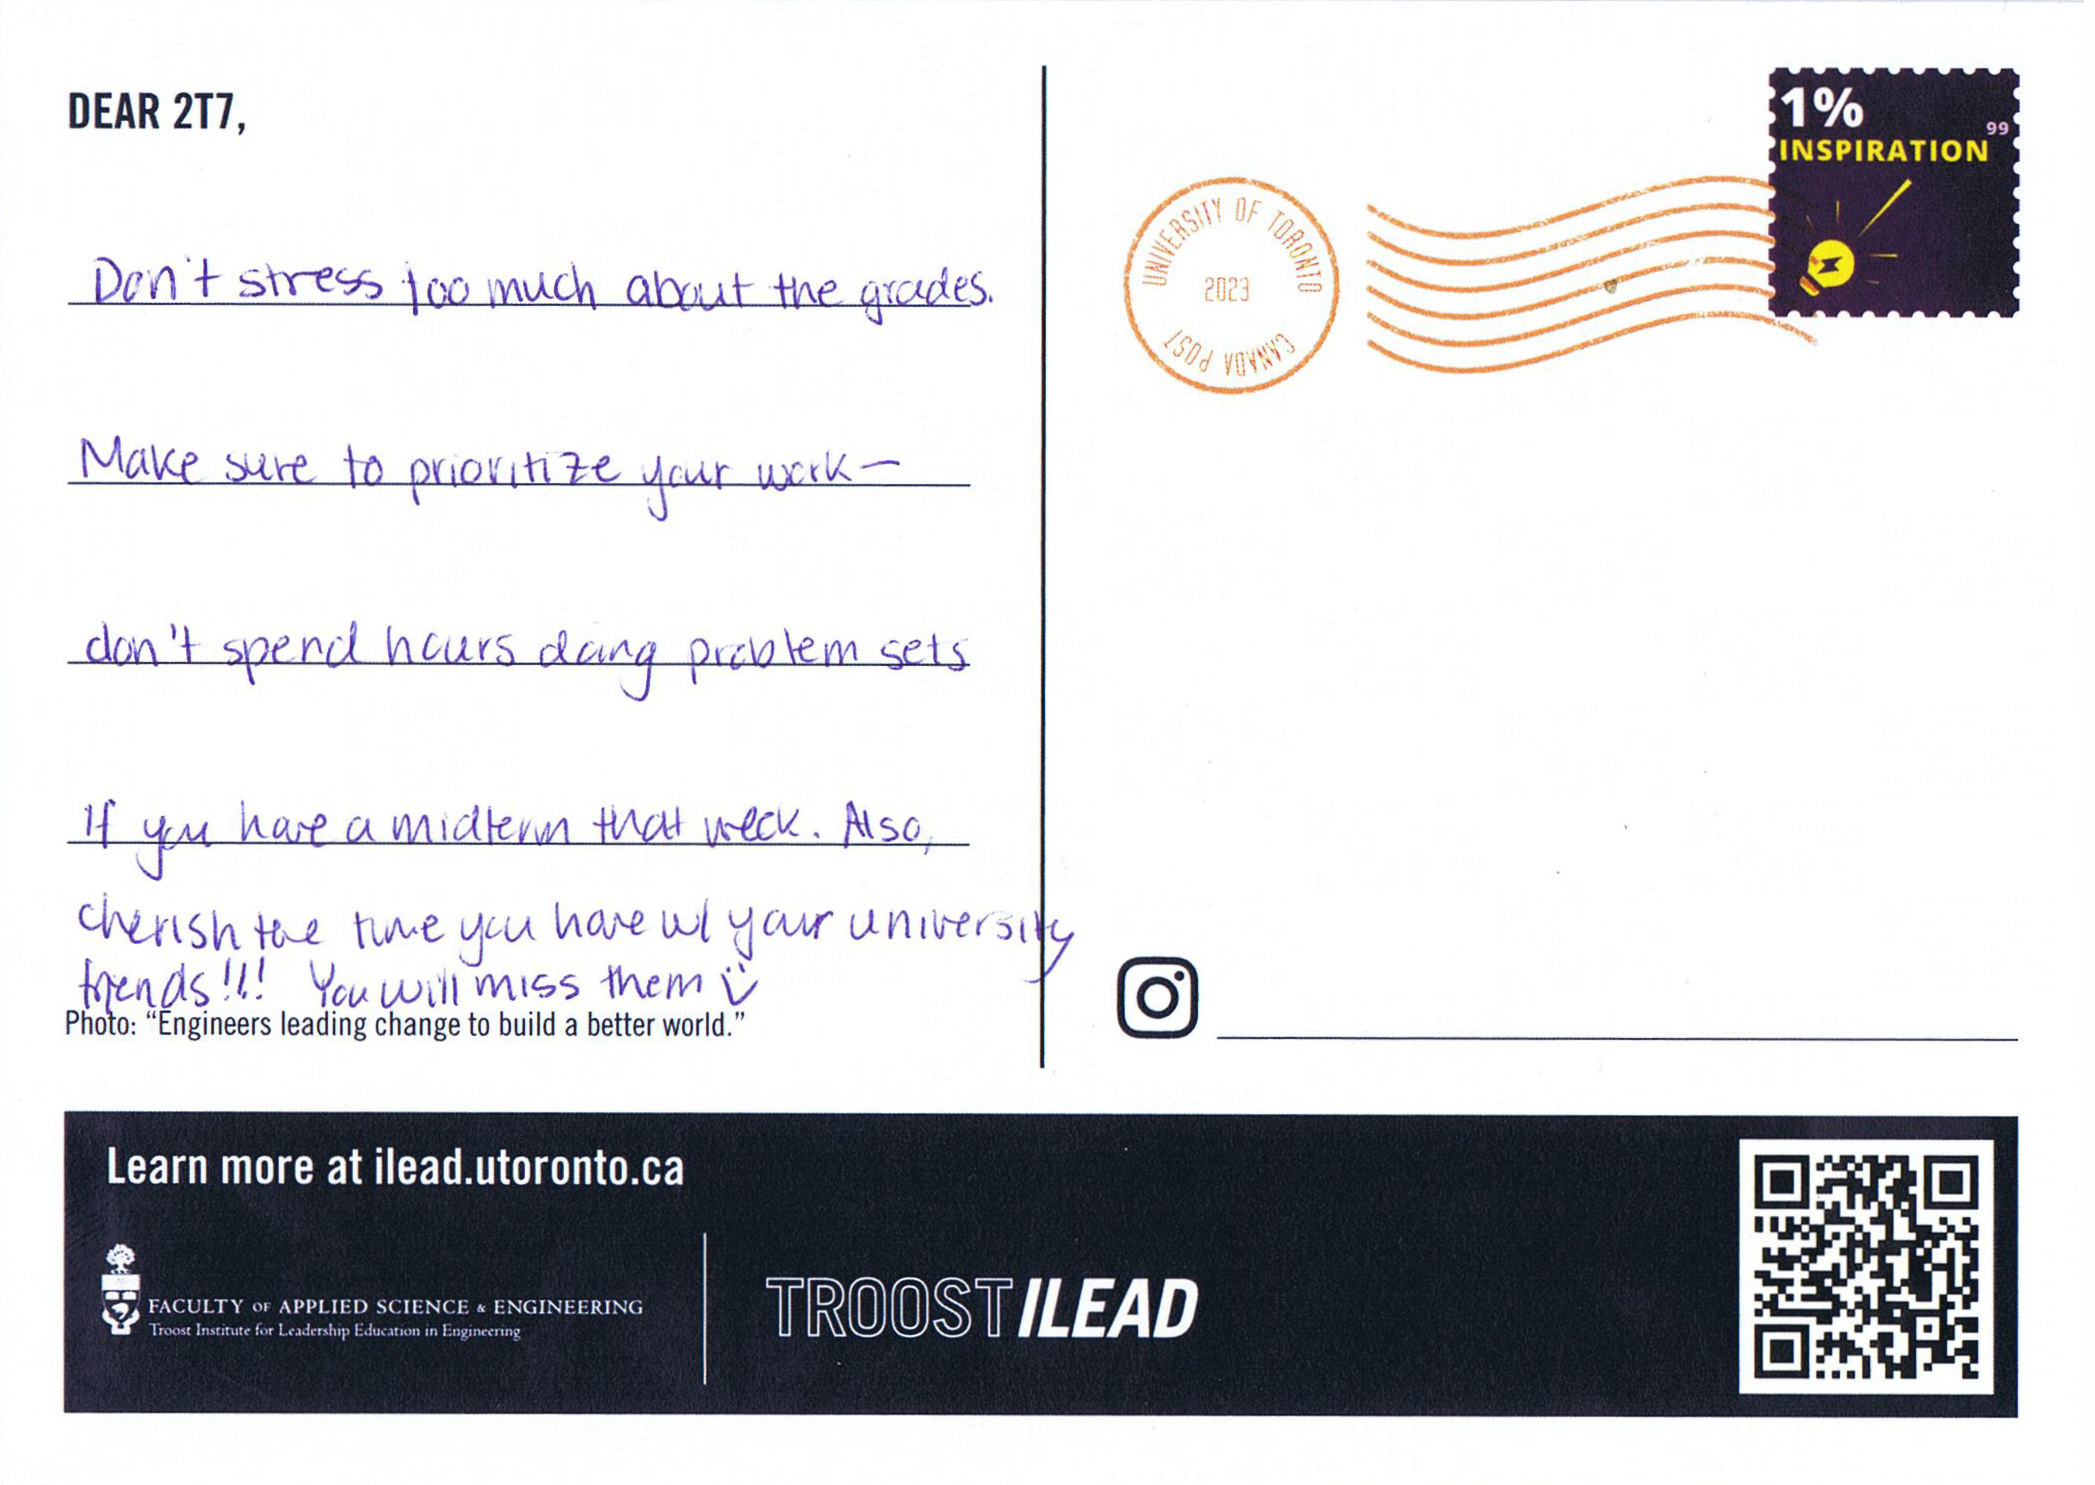 DEAR 2T7,
Don't stress too much about the grades.
Make sure to prioritize your work—
don't spend hours doing problem sets
If you have a midterm that week. Also,
cherish the time you have w/ your university
friends!!! You will miss them
Photo: “Engineers leading change to build a better world.”
UNIVERSITY OF TORONTO
2023
CANADA POST
1%
99
INSPIRATION
Learn more at ilead.utoronto.ca
FACULTY OF APPLIED SCIENCE & ENGINEERING
Troost Institute for Leadership Education in Engineering
TROOST ILEAD